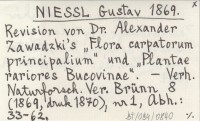 NIESSL Gustav 1869.
Revision von Dr. Alexander
Zawadzki's „Flora carpatorum
principalium" und „Plantae
rariores Bucovinae". – Verh.
Naturforsch. Ver. Brünn 8
(1869, druk 1870), nr 1, Abh.:
33-62.